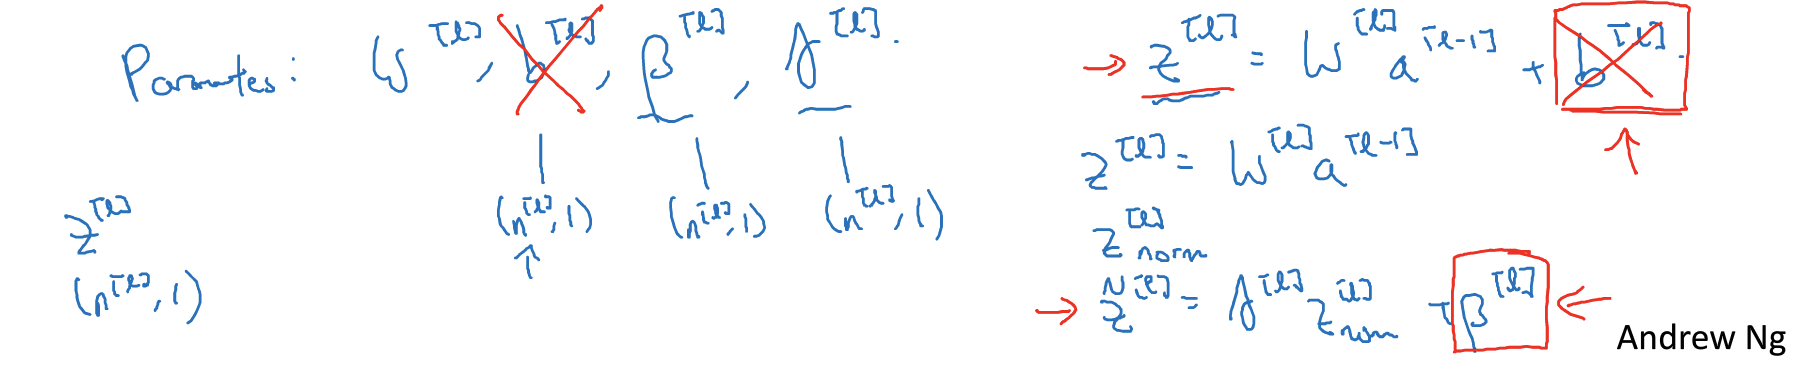 Parameters: W^[l], b^[l], β^[l], γ^[l].
(n^[l], 1) (n^[l], 1) (n^[l], 1)
z^[l]
(n^[l], 1)
→ z^[l] = W^[l] a^[l-1] + b^[l].
z^[l] = W^[l] a^[l-1]
z^[l]_norm
→ z̃^[l] = γ^[l] z^[l]_norm + β^[l] ←
Andrew Ng